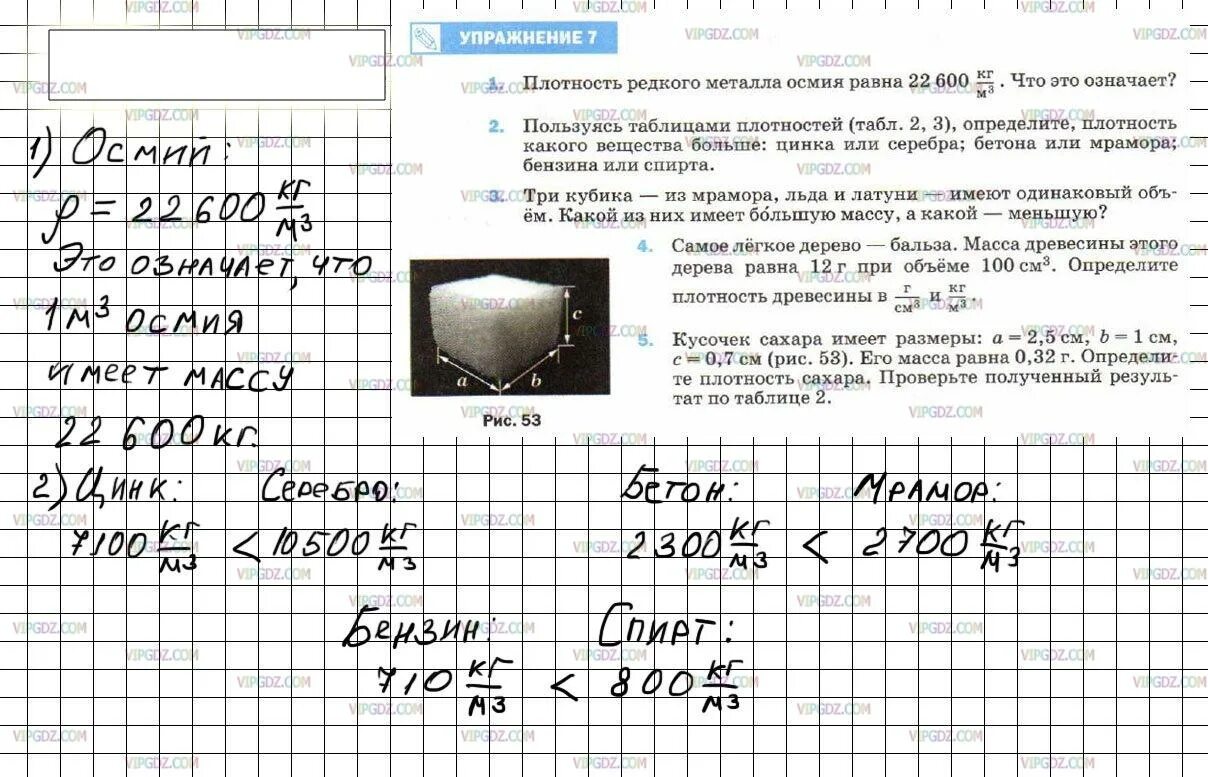 УПРАЖНЕНИЕ 7
1. Плотность редкого металла осмия равна 22 600 кг/м³. Что это означает?
2. Пользуясь таблицами плотностей (табл. 2, 3), определите, плотность
какого вещества больше: цинка или серебра; бетона или мрамора;
бензина или спирта.
3. Три кубика — из мрамора, льда и латуни — имеют одинаковый объ-
ём. Какой из них имеет бо́льшую массу, а какой — меньшую?
4. Самое лёгкое дерево — бальза. Масса древесины этого
дерева равна 12 г при объёме 100 см³. Определите
плотность древесины в г/см³ и кг/м³.
5. Кусочек сахара имеет размеры: a = 2,5 см, b = 1 см,
c = 0,7 см (рис. 53). Его масса равна 0,32 г. Определи-
те плотность сахара. Проверьте полученный резуль-
тат по таблице 2.
a
b
c
Рис. 53
1) Осмий:
ρ = 22 600 кг/м³
Это означает, что
1 м³ осмия
имеет массу
22 600 кг.
2) Цинк: Серебро: Бетон: Мрамор:
7100 кг/м³ < 10500 кг/м³ 2300 кг/м³ < 2700 кг/м³
Бензин: Спирт:
710 кг/м³ < 800 кг/м³
VIPGDZ.COM